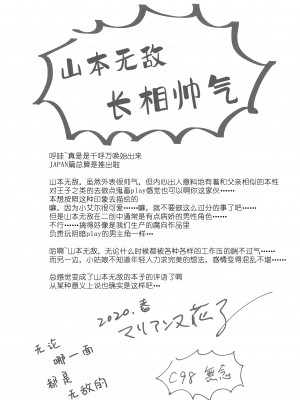 山本无敌
长相帅气
呼哇~真是是千呼万唤始出来
JAPAN篇总算是推出啦
山本无敌，虽然外表很帅气，但内心出人意料地有着和父亲相似的本性
对王子之类的去做点鬼畜play感觉也可以啊你这家伙……
本想按照这种印象去描绘的
嘛，因为小艾尔很可爱……嘛，就不要做这么过分的事了吧……
但是山本无敌在二创中通常是有点病娇的男性角色……
不行……搞得好像是我们生产的腐向作品里
负责玩阴暗play的男主角一样……
哈啊~山本无敌，无论什么时候都被各种各样的工作压的喘不过气……
而另一边，小姑娘不知道年轻人力求完美的想法，感情变得混乱不堪……
总感觉变成了山本无敌的本子的评语了啊
从某种意义上说也确实是这样吧…
2020.春
マリアン
无论
哪一面
都是
无敌的
C98 無念